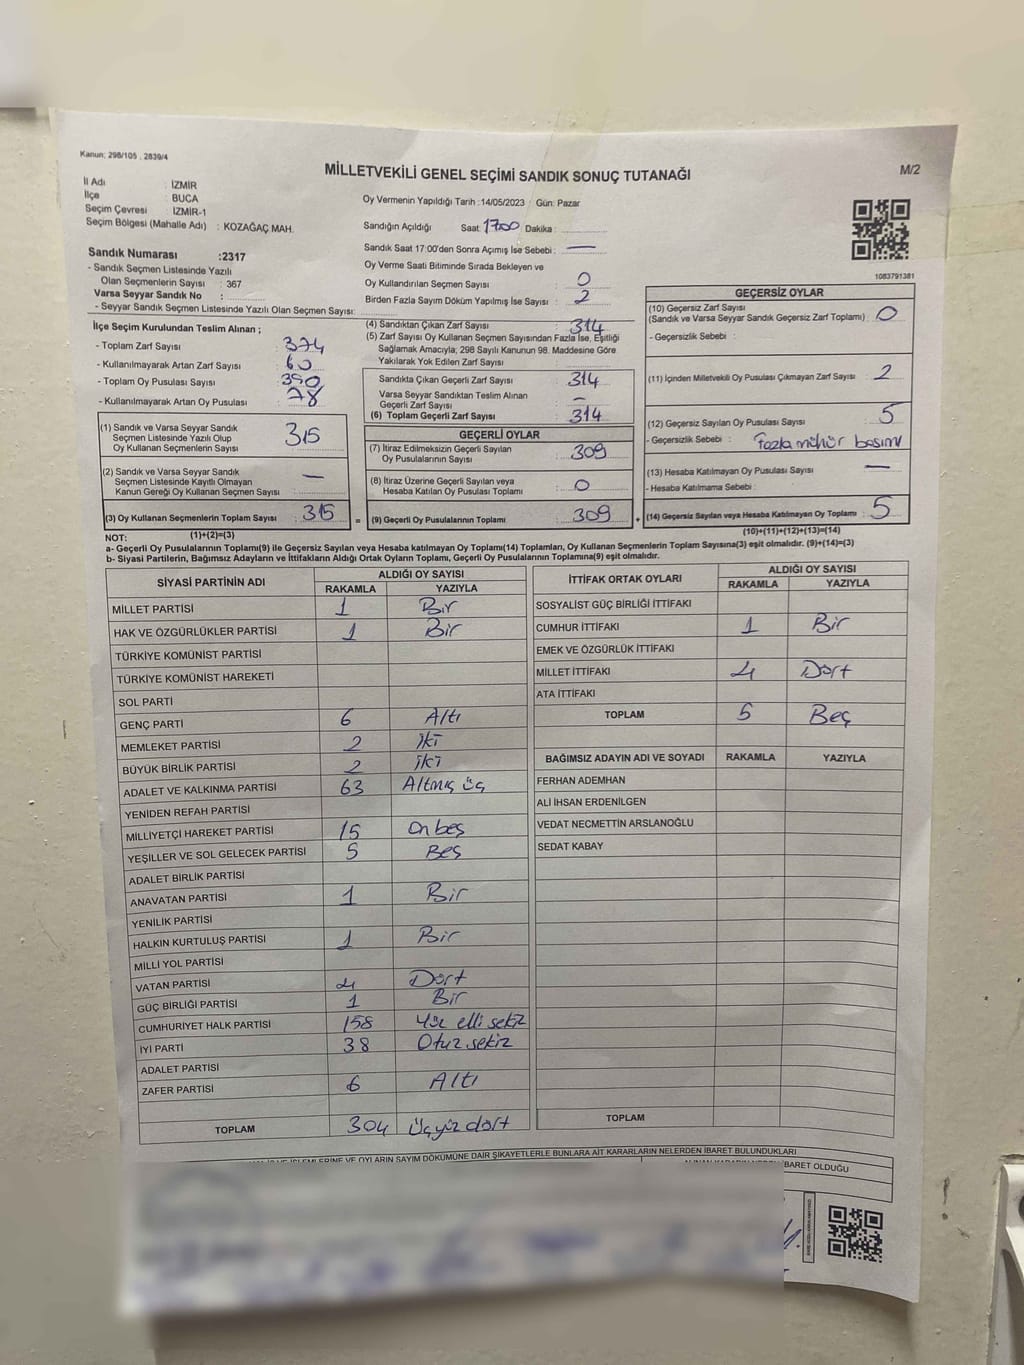 Kanun: 298/105 , 2839/4
MİLLETVEKİLİ GENEL SEÇİMİ SANDIK SONUÇ TUTANAĞI
M/2
İl Adı : İZMİR
İlçe : BUCA
Seçim Çevresi : İZMİR-1
Seçim Bölgesi (Mahalle Adı) : KOZAĞAÇ MAH.
Oy Vermenin Yapıldığı Tarih :14/05/2023 Gün: Pazar
Sandığın Açıldığı Saat: 17:00 Dakika :
Sandık Saat 17:00'den Sonra Açımış İse Sebebi : —
Oy Verme Saati Bitiminde Sırada Bekleyen ve
Oy Kullandırılan Seçmen Sayısı : 0
Birden Fazla Sayım Döküm Yapılmış İse Sayısı : 2
1083791381
Sandık Numarası :2317
- Sandık Seçmen Listesinde Yazılı
Olan Seçmenlerin Sayısı : 367
Varsa Seyyar Sandık No :
- Seyyar Sandık Seçmen Listesinde Yazılı Olan Seçmen Sayısı:
İlçe Seçim Kurulundan Teslim Alınan ;
- Toplam Zarf Sayısı : 374
- Kullanılmayarak Artan Zarf Sayısı : 60
- Toplam Oy Pusulası Sayısı : 390
- Kullanılmayarak Artan Oy Pusulası : 78
(1) Sandık ve Varsa Seyyar Sandık
Seçmen Listesinde Yazılı Olup
Oy Kullanan Seçmenlerin Sayısı : 315
(2) Sandık ve Varsa Seyyar Sandık
Seçmen Listesinde Kayıtlı Olmayan
Kanun Gereği Oy Kullanan Seçmen Sayısı : —
(3) Oy Kullanan Seçmenlerin Toplam Sayısı : 315
(1)+(2)=(3)
(4) Sandıktan Çıkan Zarf Sayısı : 314
(5) Zarf Sayısı Oy Kullanan Seçmen Sayısından Fazla İse, Eşitliği
Sağlamak Amacıyla; 298 Sayılı Kanunun 98. Maddesine Göre
Yakılarak Yok Edilen Zarf Sayısı :
Sandıkta Çıkan Geçerli Zarf Sayısı : 314
Varsa Seyyar Sandıktan Teslim Alınan
Geçerli Zarf Sayısı : —
(6) Toplam Geçerli Zarf Sayısı : 314
GEÇERLİ OYLAR
(7) İtiraz Edilmeksizin Geçerli Sayılan
Oy Pusulalarının Sayısı : 309
(8) İtiraz Üzerine Geçerli Sayılan veya
Hesaba Katılan Oy Pusulası Toplamı : 0
= (9) Geçerli Oy Pusulalarının Toplamı : 309
GEÇERSİZ OYLAR
(10) Geçersiz Zarf Sayısı
(Sandık ve Varsa Seyyar Sandık Geçersiz Zarf Toplamı) : 0
- Geçersizlik Sebebi :
(11) İçinden Milletvekili Oy Pusulası Çıkmayan Zarf Sayısı : 2
(12) Geçersiz Sayılan Oy Pusulası Sayısı : 5
- Geçersizlik Sebebi : Fazla mühür basımı
(13) Hesaba Katılmayan Oy Pusulası Sayısı : —
- Hesaba Katılmama Sebebi :
+ (14) Geçersiz Sayılan veya Hesaba Katılmayan Oy Toplamı : 5
(10)+(11)+(12)+(13)=(14)
NOT:
a- Geçerli Oy Pusulalarının Toplamı(9) ile Geçersiz Sayılan veya Hesaba katılmayan Oy Toplamı(14) Toplamları, Oy Kullanan Seçmenlerin Toplam Sayısına(3) eşit olmalıdır. (9)+(14)=(3)
b- Siyasi Partilerin, Bağımsız Adayların ve İttifakların Aldığı Ortak Oyların Toplamı, Geçerli Oy Pusulalarının Toplamına(9) eşit olmalıdır.
SİYASİ PARTİNİN ADI ALDIĞI OY SAYISI
RAKAMLA YAZIYLA
MİLLET PARTİSİ 1 Bir
HAK VE ÖZGÜRLÜKLER PARTİSİ 1 Bir
TÜRKİYE KOMÜNİST PARTİSİ
TÜRKİYE KOMÜNİST HAREKETİ
SOL PARTİ
GENÇ PARTİ 6 Altı
MEMLEKET PARTİSİ 2 iki
BÜYÜK BİRLİK PARTİSİ 2 iki
ADALET VE KALKINMA PARTİSİ 63 Altmış üç
YENİDEN REFAH PARTİSİ
MİLLİYETÇİ HAREKET PARTİSİ 15 On beş
YEŞİLLER VE SOL GELECEK PARTİSİ 5 Beş
ADALET BİRLİK PARTİSİ
ANAVATAN PARTİSİ 1 Bir
YENİLİK PARTİSİ
HALKIN KURTULUŞ PARTİSİ 1 Bir
MİLLİ YOL PARTİSİ
VATAN PARTİSİ 4 Dört
GÜÇ BİRLİĞİ PARTİSİ 1 Bir
CUMHURİYET HALK PARTİSİ 158 Yüz elli sekiz
İYİ PARTİ 38 Otuz sekiz
ADALET PARTİSİ
ZAFER PARTİSİ 6 Altı
TOPLAM 304 Üçyüz dört
İTTİFAK ORTAK OYLARI ALDIĞI OY SAYISI
RAKAMLA YAZIYLA
SOSYALİST GÜÇ BİRLİĞİ İTTİFAKI
CUMHUR İTTİFAKI 1 Bir
EMEK VE ÖZGÜRLÜK İTTİFAKI
MİLLET İTTİFAKI 4 Dört
ATA İTTİFAKI
TOPLAM 5 Beş
BAĞIMSIZ ADAYIN ADI VE SOYADI RAKAMLA YAZIYLA
FERHAN ADEMHAN
ALİ İHSAN ERDENİLGEN
VEDAT NECMETTİN ARSLANOĞLU
SEDAT KABAY
TOPLAM
VE OYLARIN SAYIM DÖKÜMÜNE DAİR ŞİKAYETLERLE BUNLARA AİT KARARLARIN NELERDEN İBARET BULUNDUKLARI
İBARET OLDUĞU